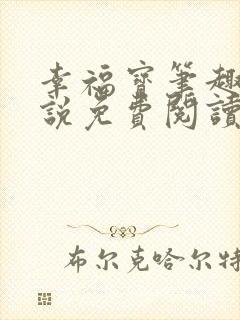 幸福寶筆趣
說免費閱讀
布尔克哈尔特